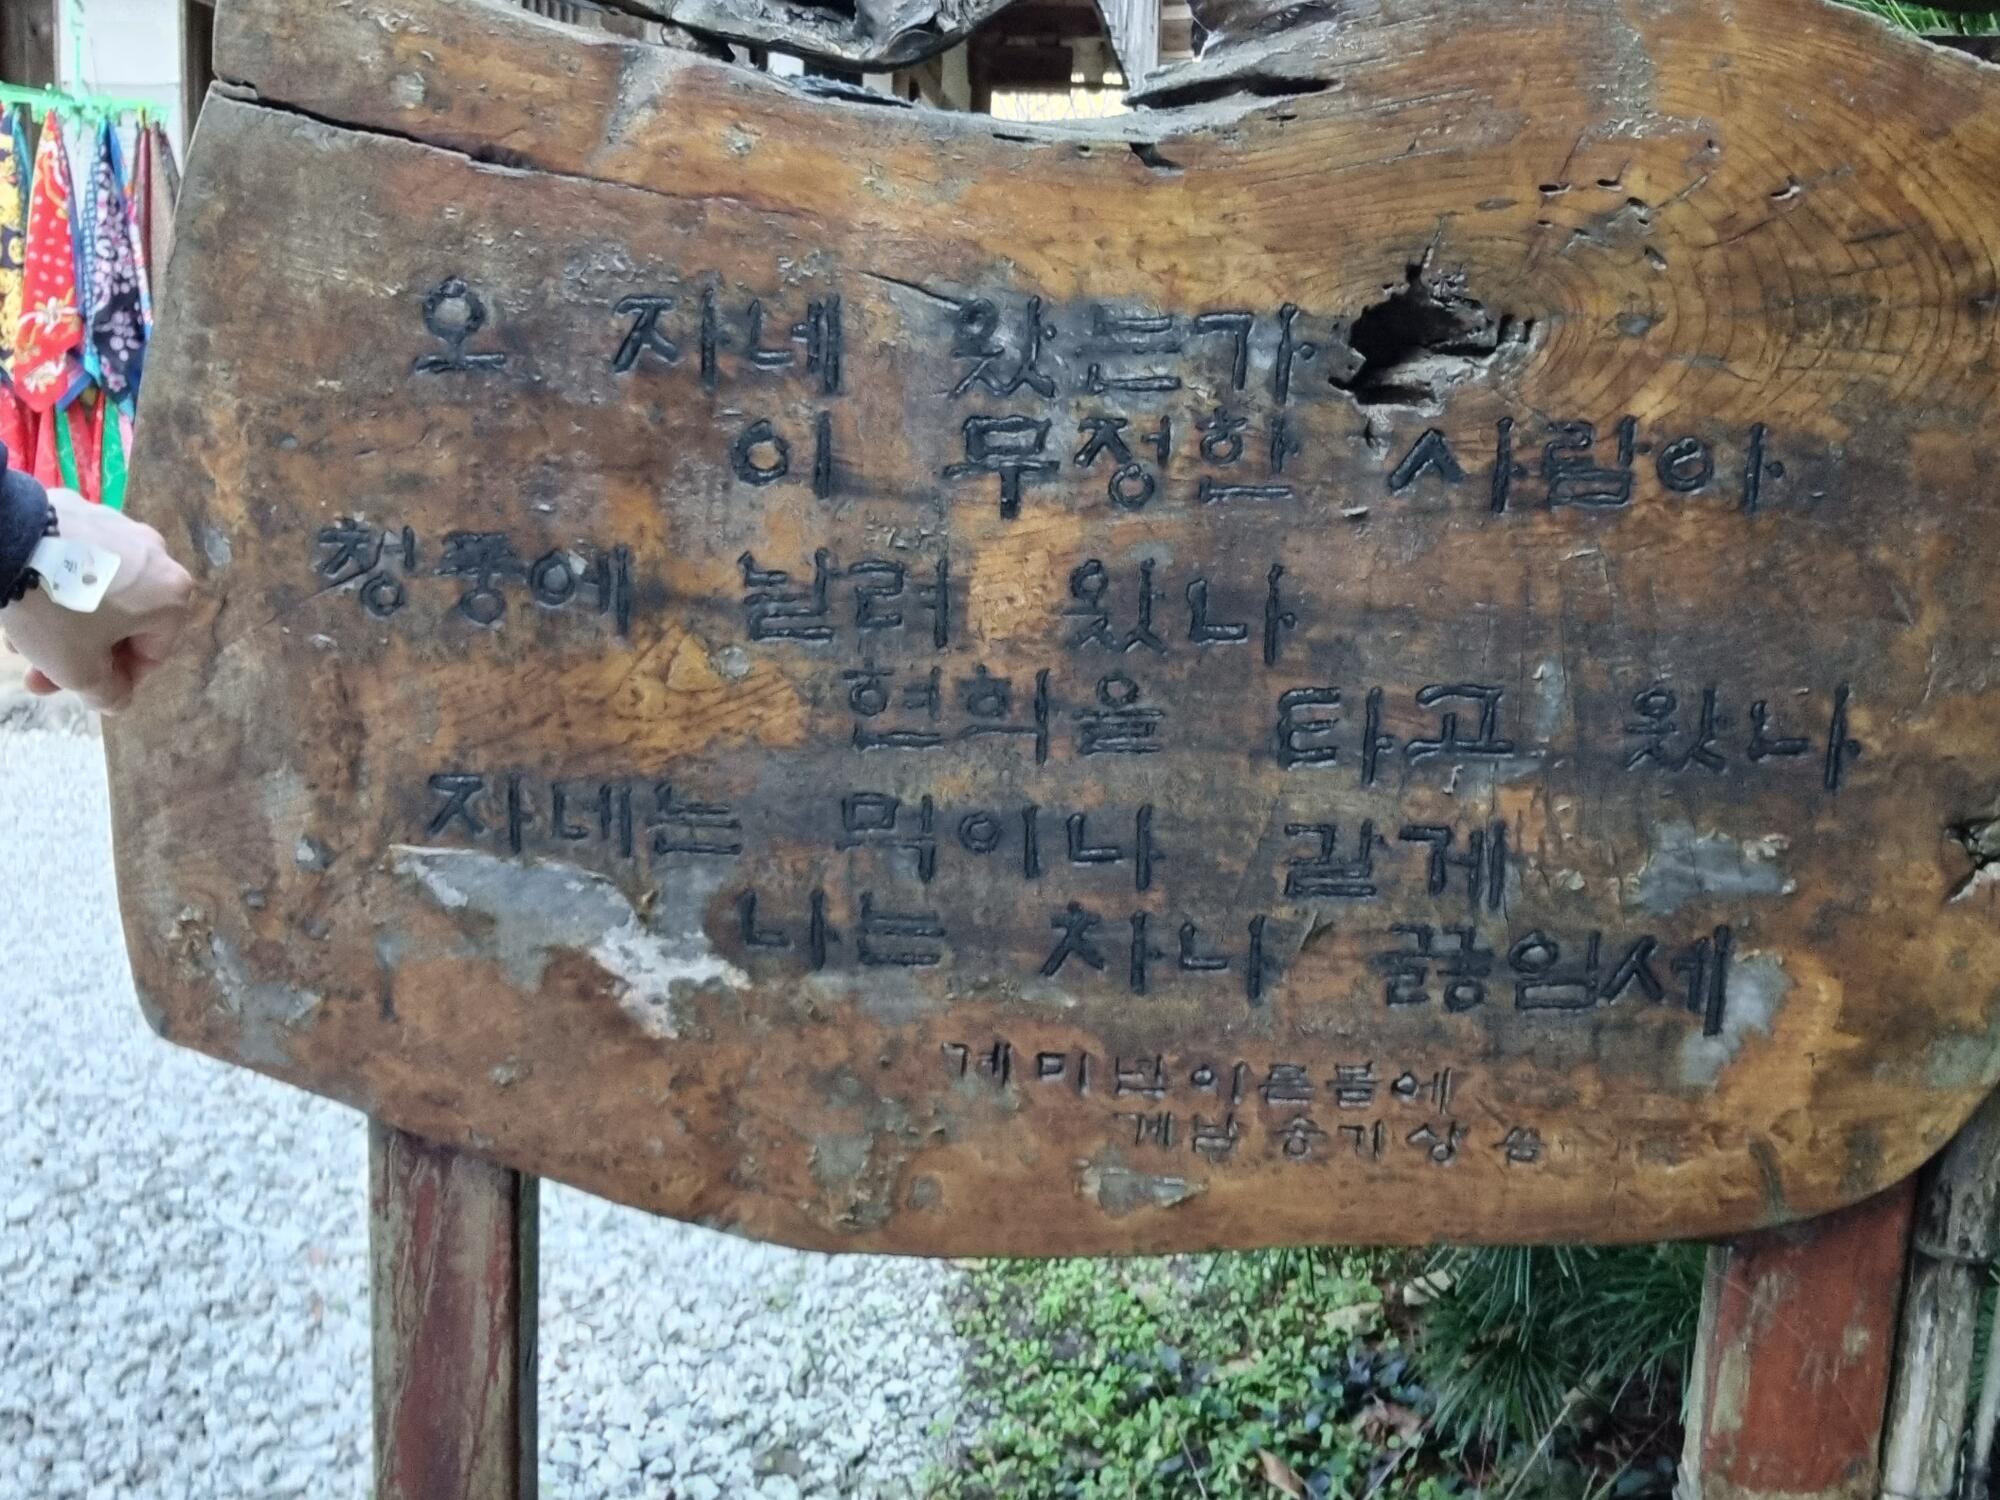 오 자네 왔는가
이 무정한 사람아
청풍에 날려 왔나
현학을 타고 왔나
자네는 먹이나 갈게
나는 차나 끓임세
계미년이른봄에
계남 송기상 씀